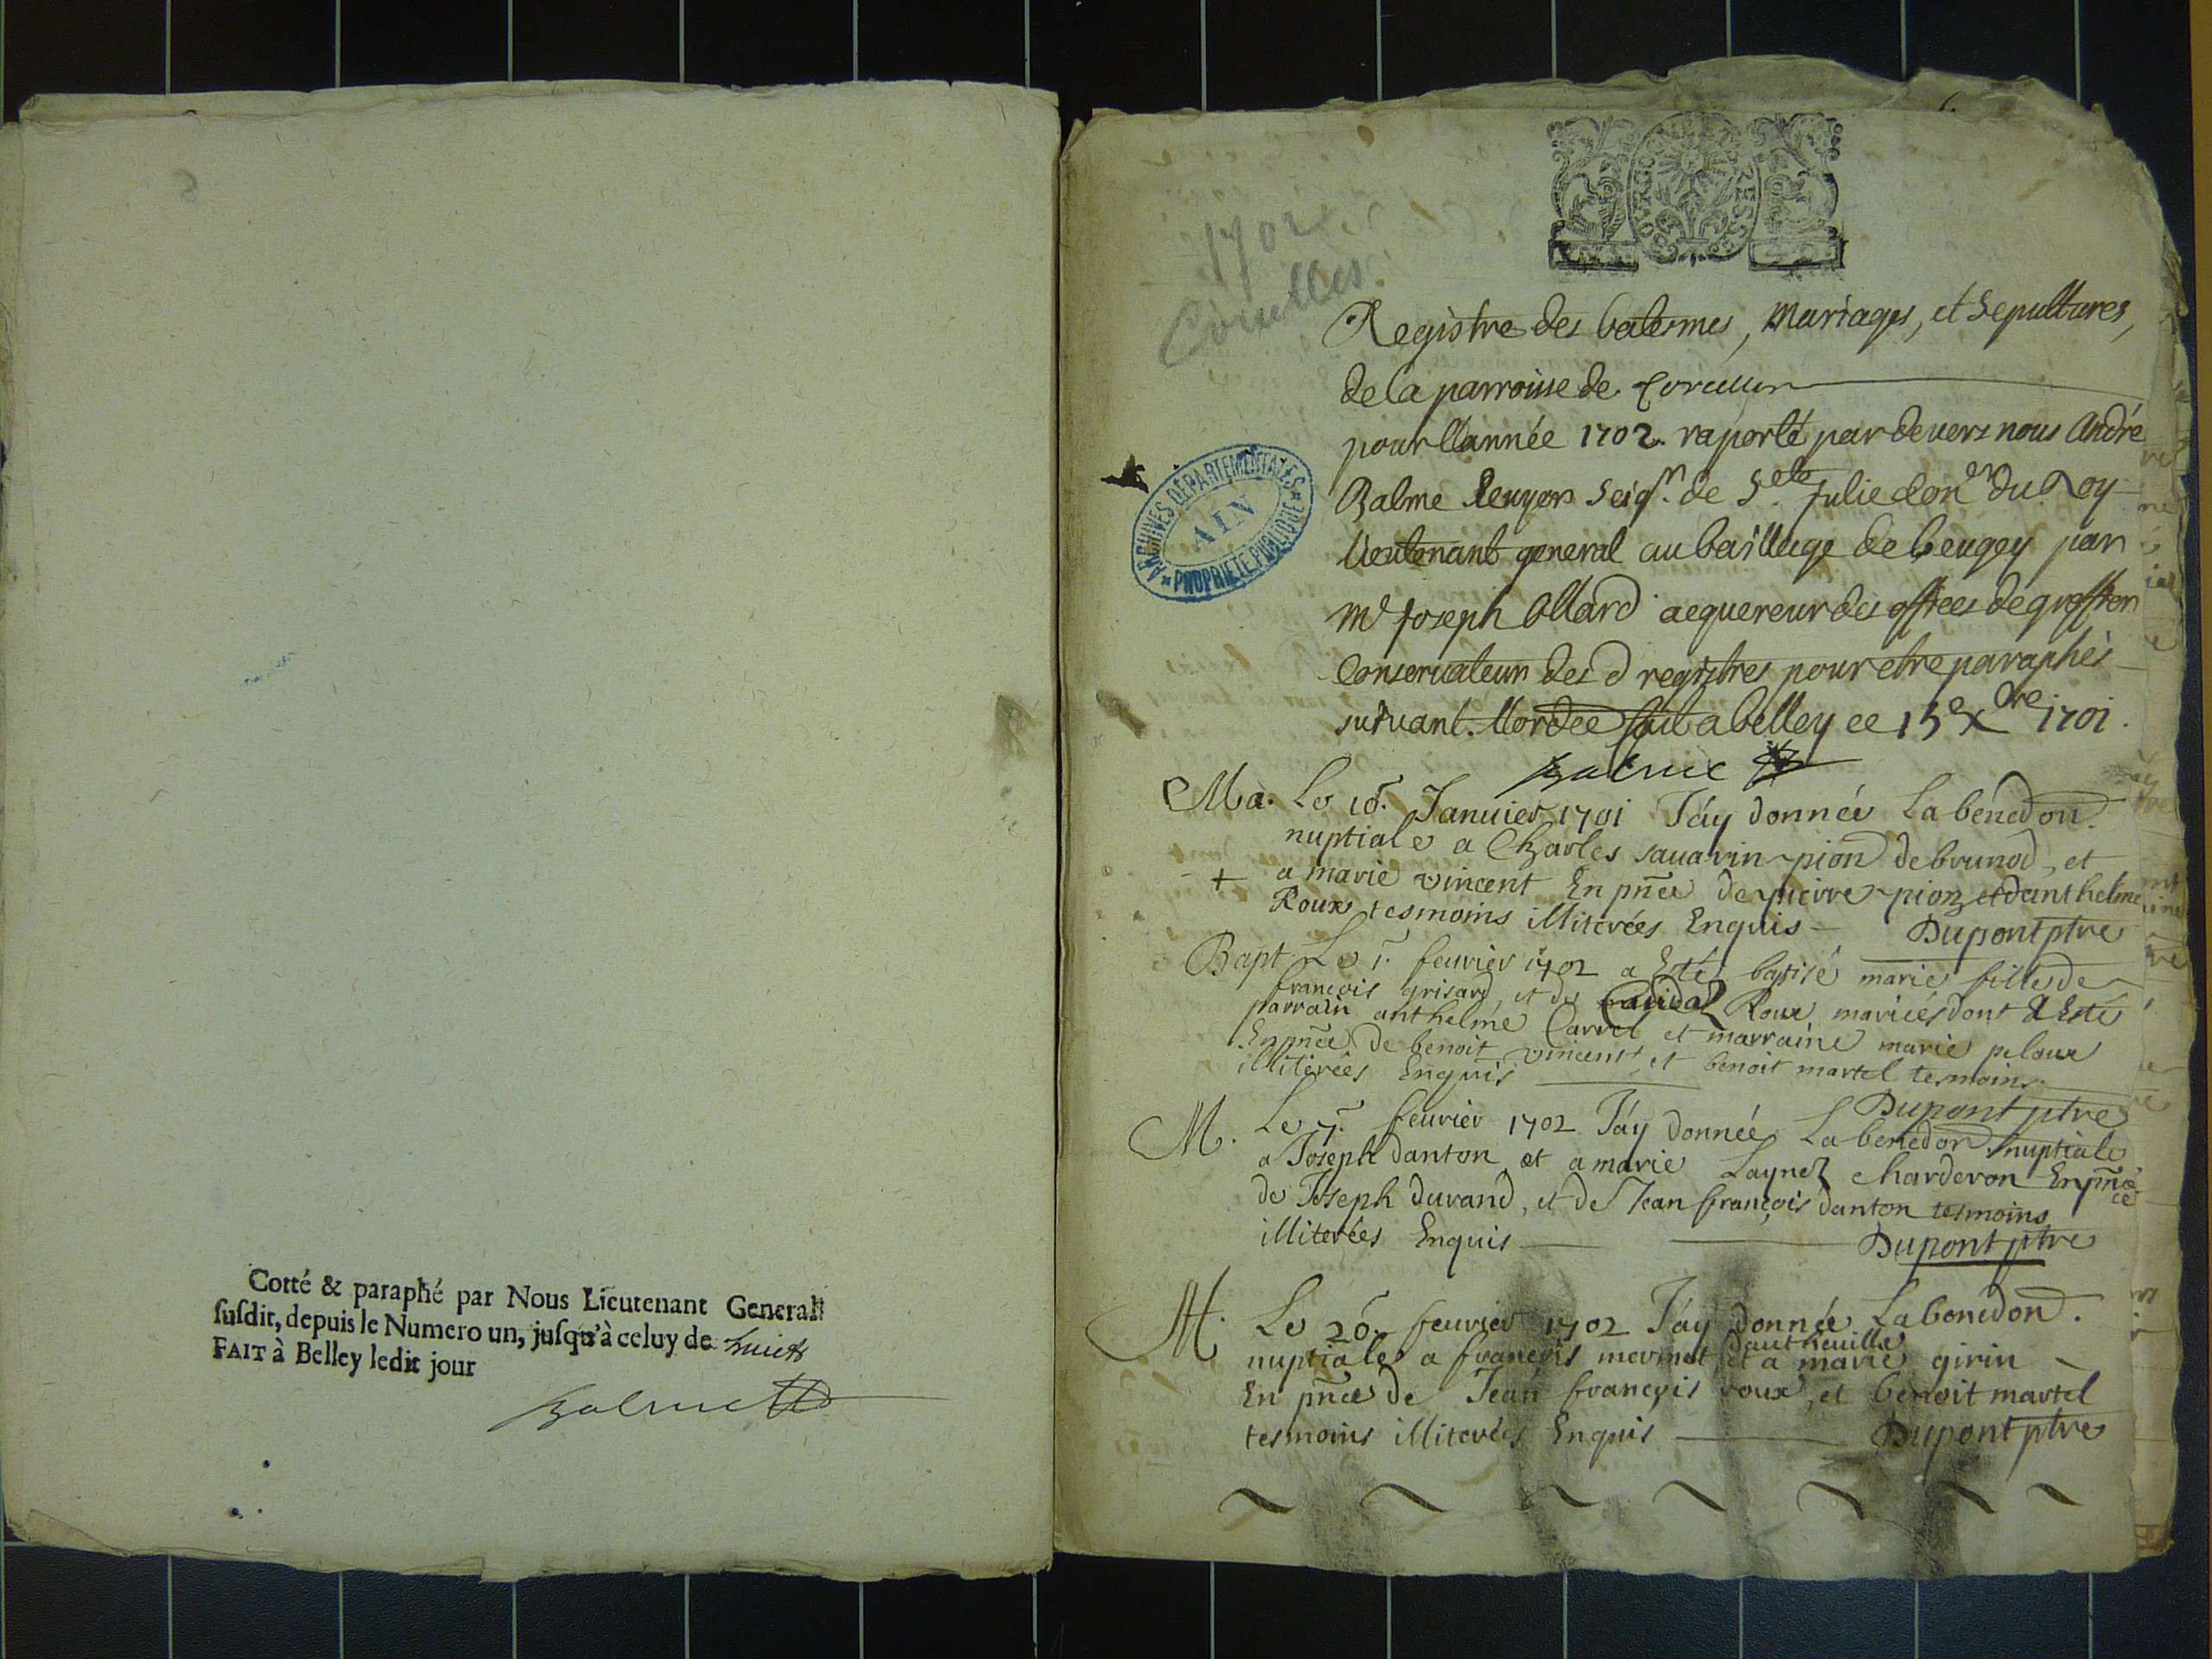 Cotté & paraphé par Nous Lieutenant Generall
susdit, depuis le Numero un, jusqu'à celuy de huict
FAIT à Belley ledit jour
Balme
1702
Corcelles
ARCHIVES DEPARTEMENTALES
AIN
PROPRIETE PUBLIQUE
Registre des batesmes, Mariages, et Sepultures,
de la parroisse de
pour l'année 1702. raporté par devers nous André
Balme Seigr. de Ste Julie Conr du Roy
lieutenant general au baillage de beugey par
Me Joseph Allard acquereur des offices de greffier
Conservateur des d registres pour etre paraphés
suivant lordce fait a belley ce 15e Xbre 1701.
Balme
Ma. Le 16. Januier 1701 J'áy donnée La benedon.
nuptiale a Charles sauarin pion de brunod, et
+ a marie vincent En pñce de pierre pion et danthelme
Roux tesmoins illiterées Enquis — Dupont ptre
Bapt Le 1. feurier 1702 a Esté baptisé marie fille de
françois grisard, et de Roux mariées dont a Esté
parrain anthelme Carrel et marraine marie peloux
En pñce de benoit vincent, et benoit martel tesmoins.
illiterées Enquis — Dupont ptre
M. Le 7. feurier 1702 J'áy donnée La benedon nuptiale
a Joseph danton et a marie Laynez charderon En pñce
de Joseph durand, et de Jean françois danton tesmoins
illiterées Enquis — Dupont ptre
M. Le 26. feurier 1702 J'áy donnée La benedon.
nuptiale a françois mermet dautheuille et a marie girin
En pñce de Jean françois roux, et benoit martel
tesmoins illiterées Enquis — Dupont ptre